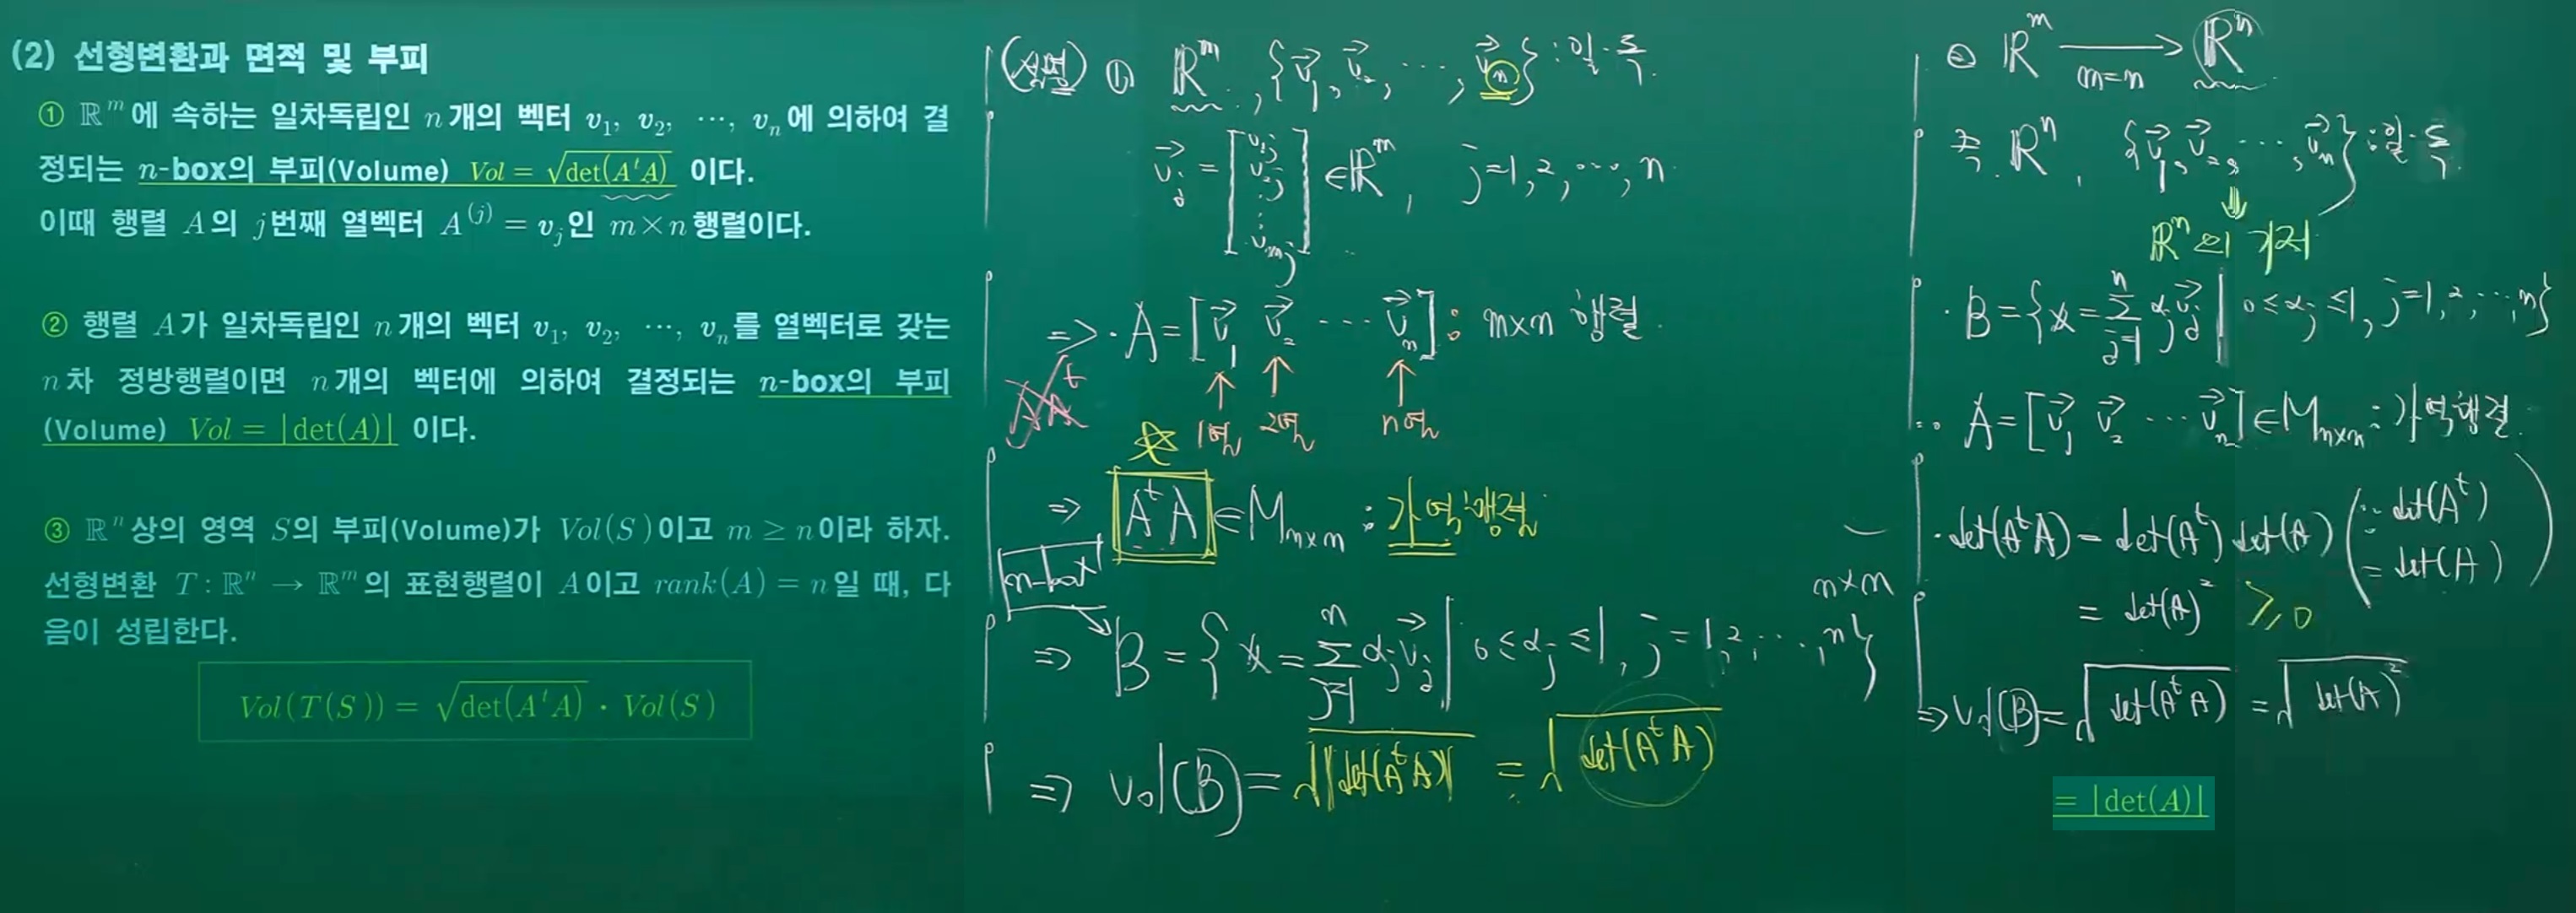 (2) 선형변환과 면적 및 부피
① ℝᵐ에 속하는 일차독립인 n개의 벡터 v₁, v₂, ⋯, vₙ에 의하여 결
정되는 n-box의 부피(Volume) Vol = √det(AᵗA) 이다.
이때 행렬 A의 j번째 열벡터 A⁽ʲ⁾ = vⱼ인 m×n행렬이다.
② 행렬 A가 일차독립인 n개의 벡터 v₁, v₂, ⋯, vₙ를 열벡터로 갖는
n차 정방행렬이면 n개의 벡터에 의하여 결정되는 n-box의 부피
(Volume) Vol = |det(A)| 이다.
③ ℝⁿ상의 영역 S의 부피(Volume)가 Vol(S)이고 m ≥ n이라 하자.
선형변환 T : ℝⁿ → ℝᵐ의 표현행렬이 A이고 rank(A) = n일 때, 다
음이 성립한다.
Vol(T(S)) = √det(AᵗA) · Vol(S)
(설명) ① ℝᵐ, {v⃗₁, v⃗₂, ⋯, v⃗ₙ} : 일.독
v⃗ⱼ = [v₁ⱼ v₂ⱼ ⋮ vₘⱼ] ∈ℝᵐ, j=1, 2, ⋯, n
⇒ · A = [v⃗₁ v⃗₂ ⋯ v⃗ₙ] : m×n 행렬
↑ ↑ ↑
1열 2열 n열
AAᵗ
☆
⇒ AᵗA ∈ Mₙₓₙ : 가역행렬
n-box
n×n
⇒ B = { x = Σⁿⱼ₌₁ αⱼv⃗ⱼ | 0≤αⱼ≤1, j=1, 2, ⋯, n }
⇒ vol(B) = √|det(AᵗA)| = √det(AᵗA)
② ℝᵐ → ℝⁿ
m=n
즉, ℝⁿ, {v⃗₁, v⃗₂, ⋯, v⃗ₙ} : 일.독
⇓
ℝⁿ의 기저
· B = { x = Σⁿⱼ₌₁ αⱼv⃗ⱼ | 0≤αⱼ≤1, j=1, 2, ⋯, n }
A = [v⃗₁ v⃗₂ ⋯ v⃗ₙ] ∈ Mₙₓₙ : 가역행렬
· det(AᵗA) = det(Aᵗ) det(A) (∵ det(Aᵗ) = det(A))
= det(A)² ≥ 0
⇒ vol(B) = √det(AᵗA) = √det(A)²
= |det(A)|